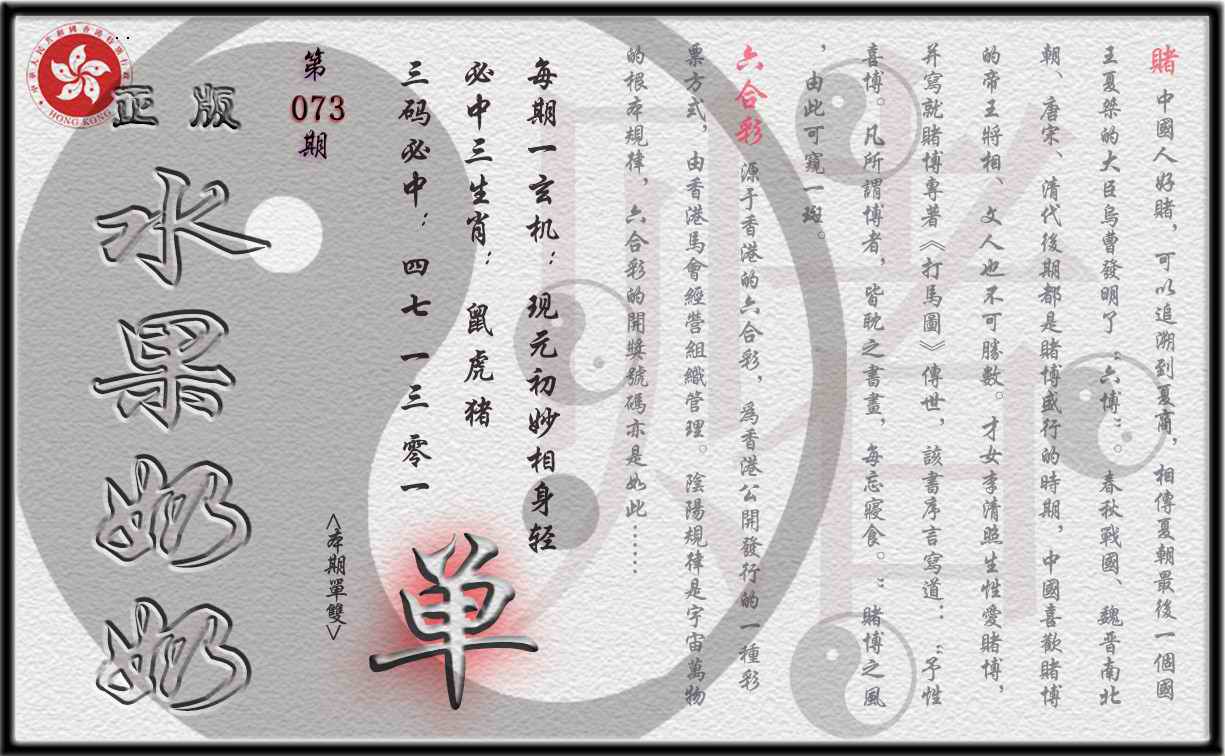 賭 中國人好賭，可以追溯到夏商，相傳夏朝最後一個國
王夏桀的大臣烏曹發明了“六博”。春秋戰國、魏晋南北
朝、唐宋、清代後期都是賭博盛行的時期，中國喜歡賭博
的帝王將相、文人也不可勝數。才女李清照生性愛賭博，
并寫就賭博專著《打馬圖》傳世，該書序言寫道：“予性
喜博。凡所謂博者，皆耽之書畫，每忘寢食。”賭博之風
，由此可窺一斑。
六合彩 源于香港的六合彩，爲香港公開發行的一種彩
票方式，由香港馬會經營組織管理。陰陽規律是宇宙萬物
的根本規律，六合彩的開獎號碼亦是如此……
每期一玄机：现元初妙相身轻
必中三生肖：鼠虎猪
三码必中：四七一三零一
單
<本期單雙>
第
073
期
正版
水果奶奶
HONG KONG